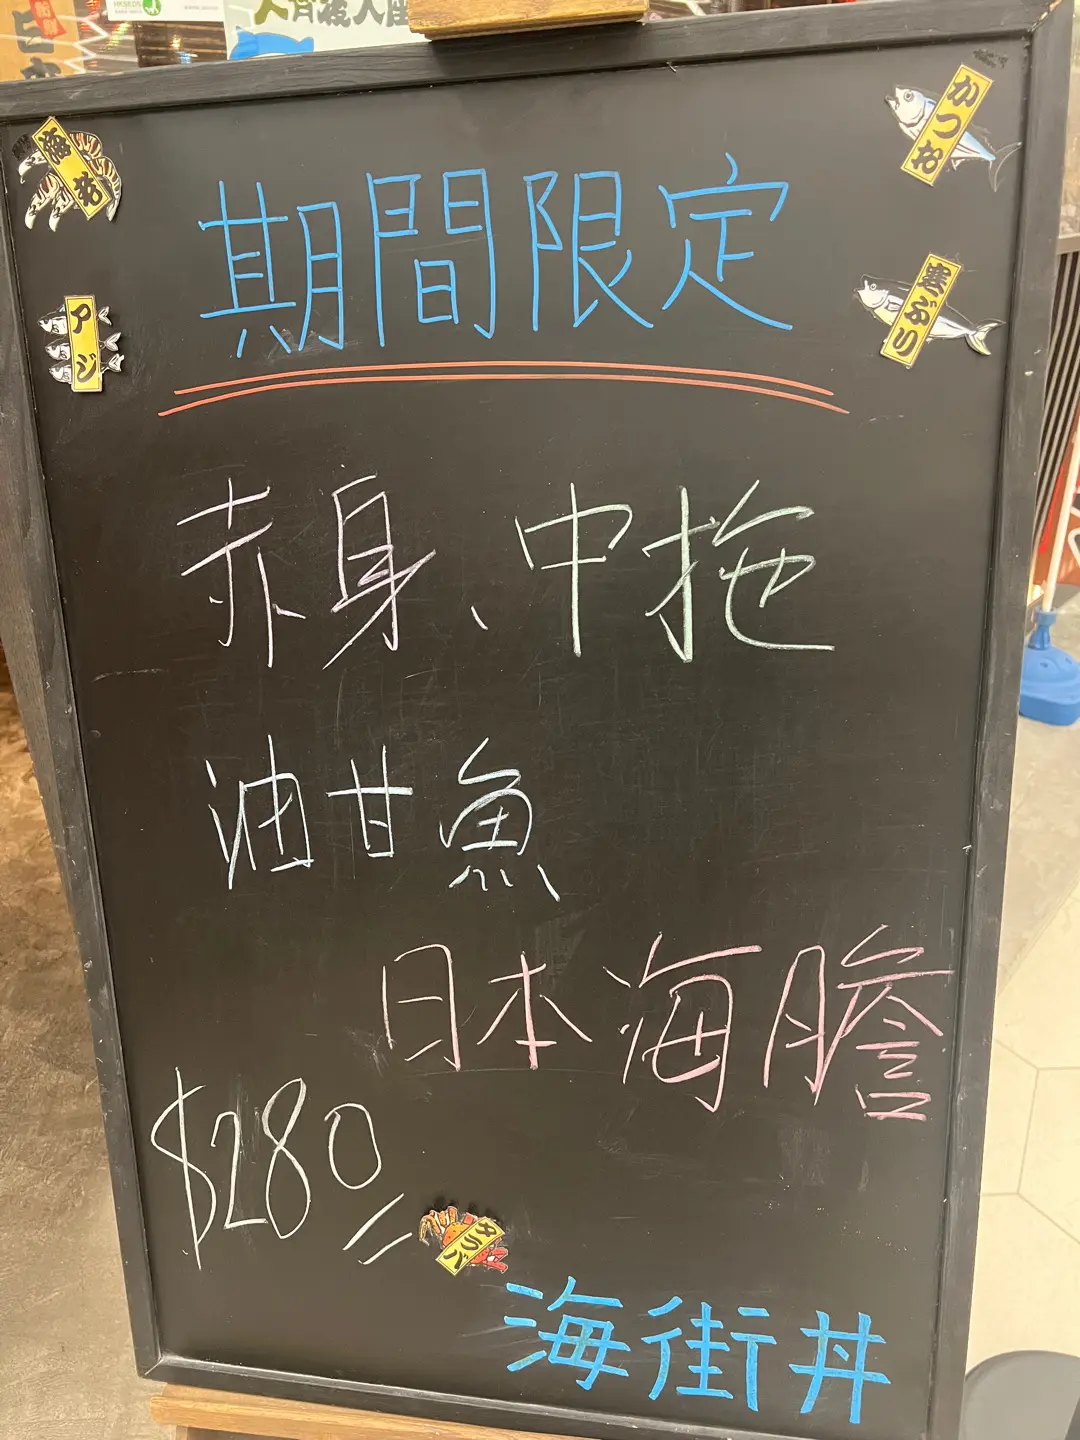 期間限定
海老
かつお
アジ
寒ぶり
赤身、中拖
油甘魚
日本海膽
$280
タラバ
海街丼